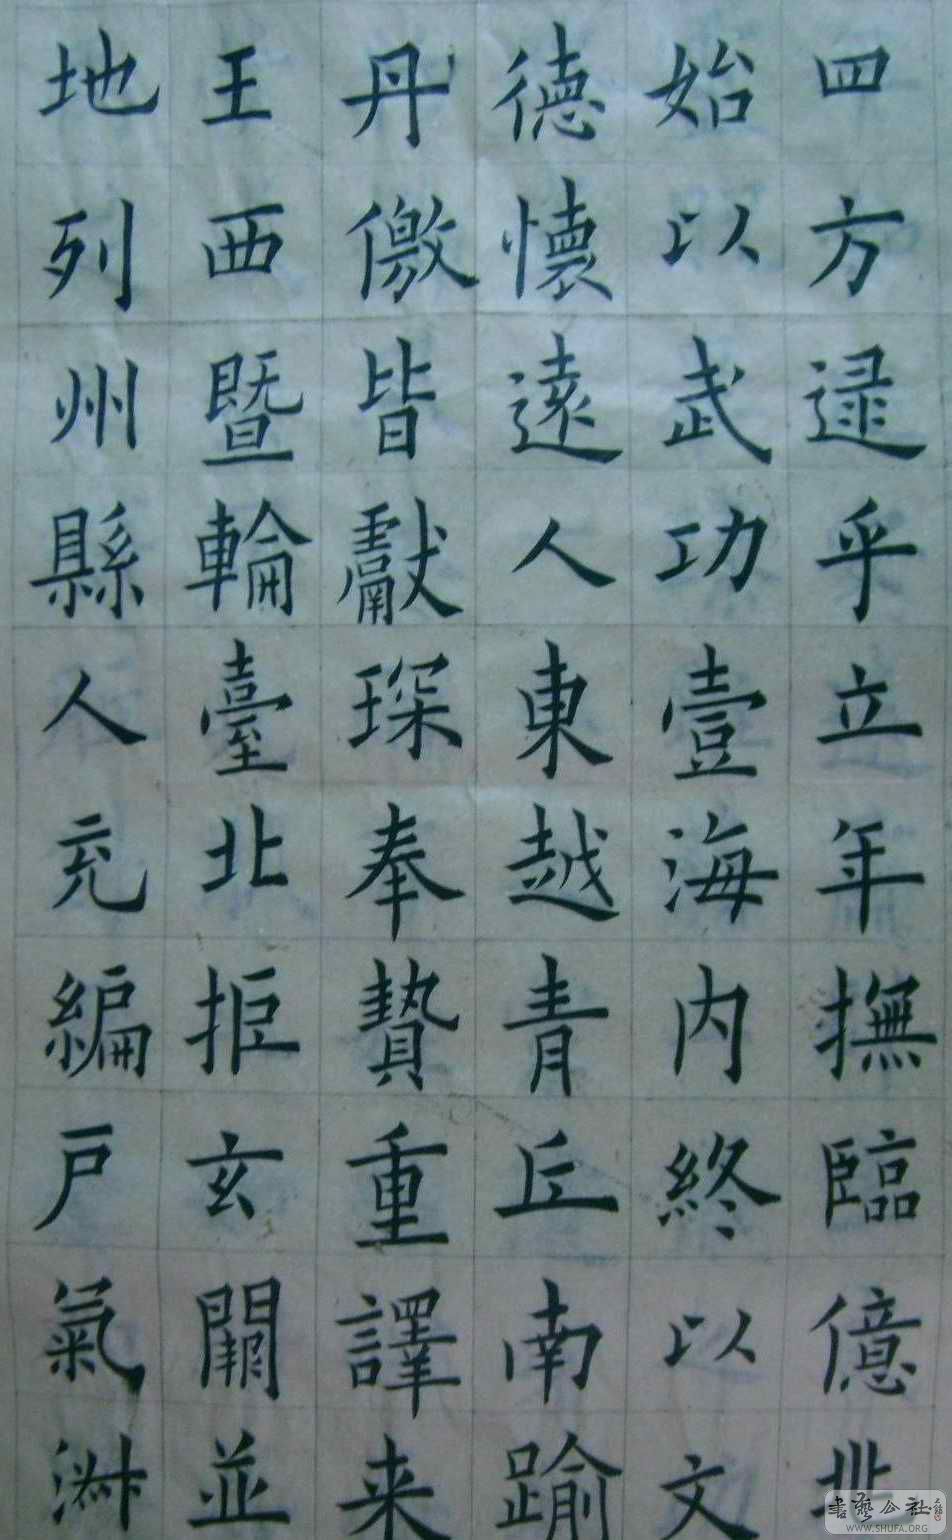 四方逮乎立年撫臨億兆
始以武功壹海内終以文
德懷遠人東越青丘南踰
丹儌皆獻琛奉贄重譯来
王西暨輪臺北拒玄闕並
地列州縣人充編户氣淑
書藝公社
WWW.SHUFA.ORG